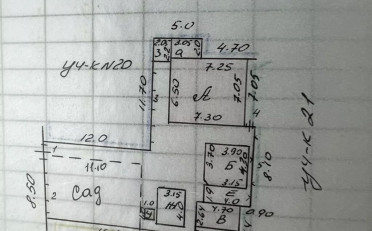 5.0
2.05 3.05
3 а 2.0
4.70
уч-к N20
7.25
11.70
6.50 А 7.05 7.05
7.30
4
12.0
1
11.10
3.90
3.70 Б 4.30
5 8.10
уч-к 21
8.50
Сад
2
3.15
1.9 Е
4.0
3.15
1.0
Ж
4.70
2.64 В
0.90